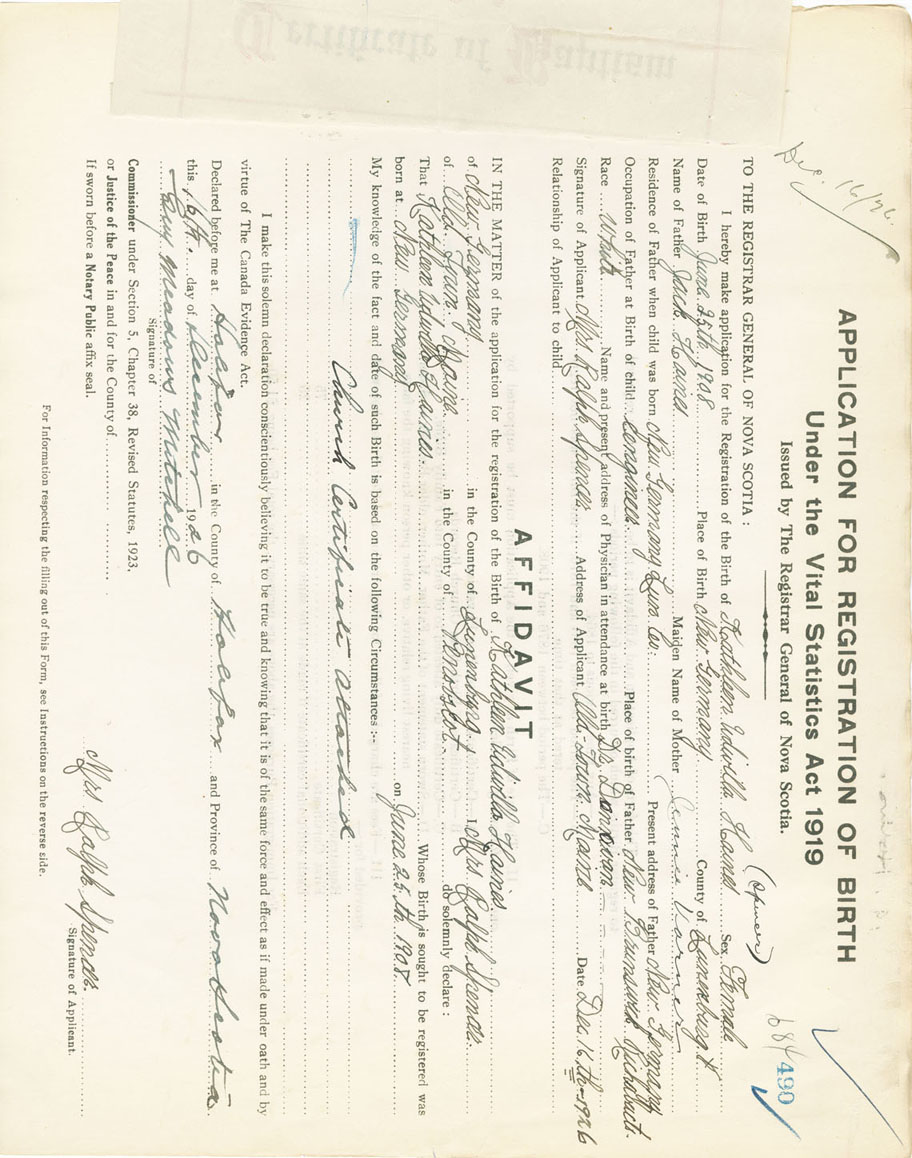 Certificate of Baptism
Dec. 16/26.
APPLICATION FOR REGISTRATION OF BIRTH
Under the Vital Statistics Act 1919
Issued by The Registrar General of Nova Scotia.
684 490
(Spencer)
TO THE REGISTRAR GENERAL OF NOVA SCOTIA :
I hereby make application for the Registration of the Birth of Kathleen Udvilla Haines Sex Female
Date of Birth June 25th 1908 Place of Birth New Germany County of Lunenburg
Name of Father Jack Haines Maiden Name of Mother Annie Warner
Residence of Father when child was born New Germany Lun Co. Present address of Father New Germany
Occupation of Father at Birth of child Place of birth of Father New Brunswick
Race White Name and present address of Physician in attendance at birth Dr. Donovan
Signature of Applicant Mrs Ralph Spender Address of Applicant Old Town Maine Date Dec 16th-1926
Relationship of Applicant to child
AFFIDAVIT
IN THE MATTER of the application for the registration of the Birth of Kathleen Udvilla Haines
of New Germany in the County of Lunenburg I Mrs Ralph Spender
of Old Town Maine in the County of Penobscot do solemnly declare :
That Kathleen Udvilla Haines Whose Birth is sought to be registered was
born at New Germany on June 25th 1908
My knowledge of the fact and date of such Birth is based on the following Circumstances :-
Church Certificate attached
I make this solemn declaration conscientiously believing it to be true and knowing that it is of the same force and effect as if made under oath and by
virtue of The Canada Evidence Act.
Declared before me at Halifax in the County of Halifax and Province of Nova Scotia
this 16th day of December 1926
Guy Meadows Mitchell
Signature of
Mrs Ralph Spender
Signature of Applicant.
Commissioner under Section 5, Chapter 38, Revised Statutes, 1923,
or Justice of the Peace in and for the County of
If sworn before a Notary Public affix seal.
For Information respecting the filling out of this Form, see Instructions on the reverse side.